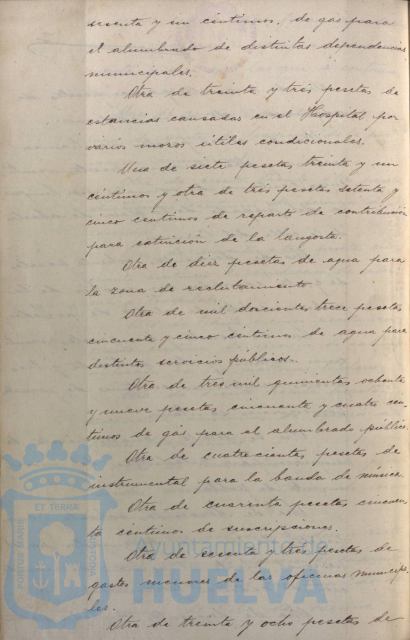 sesenta y un céntimos, de gas para
el alumbrado de distintas dependencias
municipales.
Otra de treinta y tres pesetas de
estancias causadas en el Hospital por
varios mozos útiles condicionales.
Una de siete pesetas treinta y un
céntimos y otra de tres pesetas setenta y
cinco centimos de reparto de contribución
para extinción de la langosta.
Otra de diez pesetas de agua para
la zona de reclutamiento
Otra de mil doscientas trece pesetas
cincuenta y cinco centimos de agua para
distintos servicios públicos.
Otra de tres mil quinientas ochenta
y nueve pesetas cincuenta y cuatro cen-
timos de gas para el alumbrado público.
Otra de cuatrocientas pesetas de
instrumental para la banda de música.
Otra de cuarenta pesetas cincuen-
ta centimos de suscripciones.
Otra de sesenta y tres pesetas de
gastos menores de las oficinas municipa-
les.
Otra de treinta y ocho pesetas de
Ayuntamiento de
HUELVA
PORTUS MARIS ET TERRAE CUSTODIA